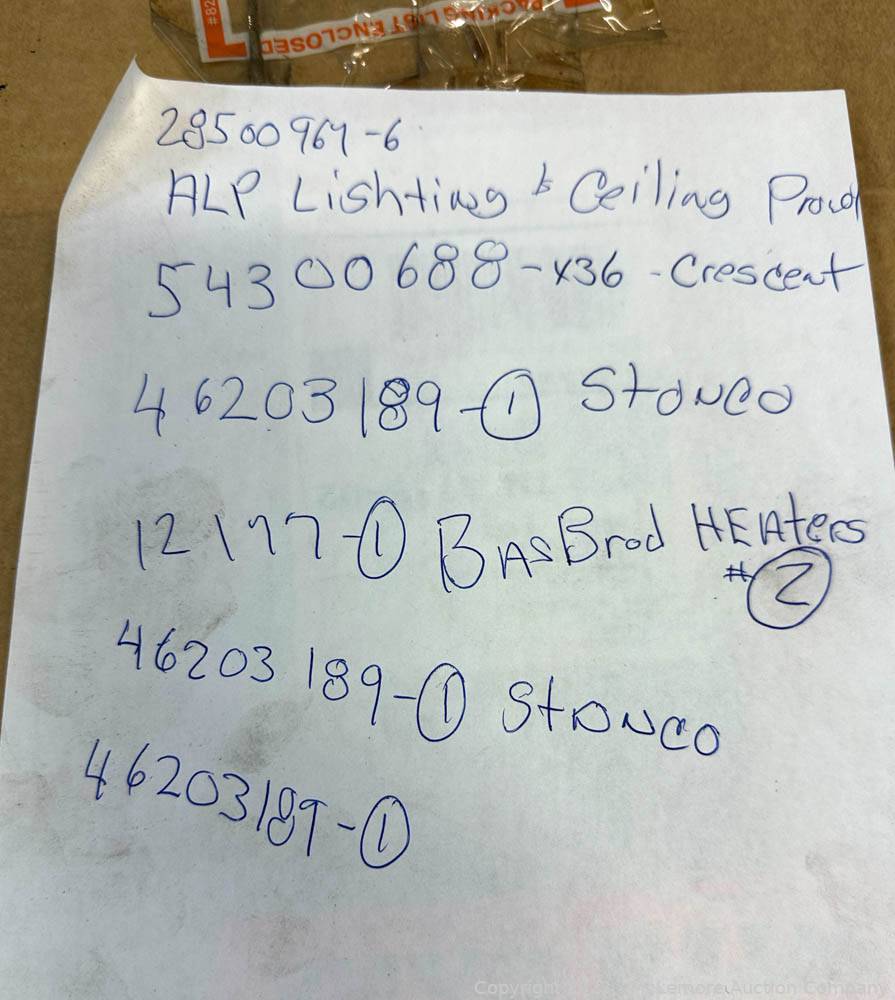 #82
PACKING LIST ENCLOSED
28500964-6
ALP Lishting & Ceiling Prod
54300688-x36-Crescent
46203189-① Stonco
12177-① BasBrod HEAters
#②
46203189-① Stonco
46203189-①
Copyright Lemore Auction Company